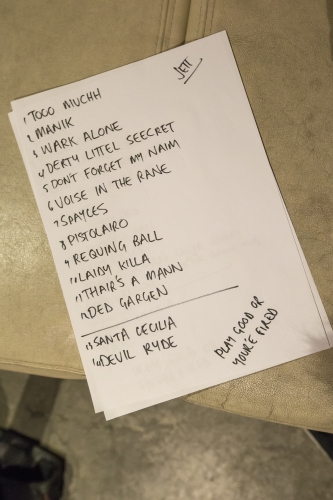 JETT
1 TOOO MUCHH
2 MANIK
3 WARK ALONE
4 DERTY LITTEL SEECRET
5 DON'T FORGET MY NAIM
6 VOISE IN THE RANE
7 SPAYCES
8 PISTOLAIRO
9 REQUING BALL
10 LAIDY KILLA
11 THAIR'S A MANN
12 DED GARGEN
13 SANTA CECILIA
14 DEVIL RYDE
PLAY GOOD OR
YOUR'E FIRED